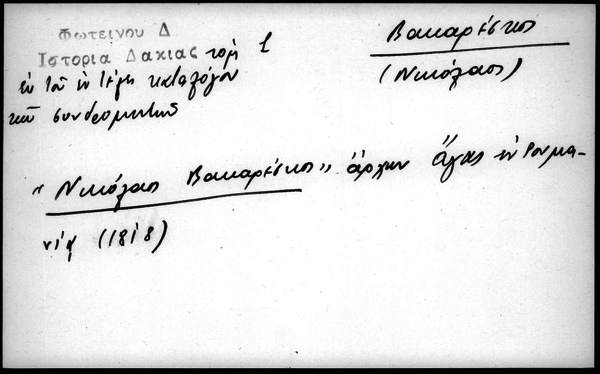 Φωτεινου Δ
Ιστορια Δακιας τομ 1
ἐκ τοῦ ἐν τέλει καταλόγου
τῶν συνδρομητῶν
Βακαρέσκος
(Νικόλαος)
"Νικόλαος Βακαρέσκος" ἄρχων ἄγας ἐν Ρουμα-
νίᾳ (1818)